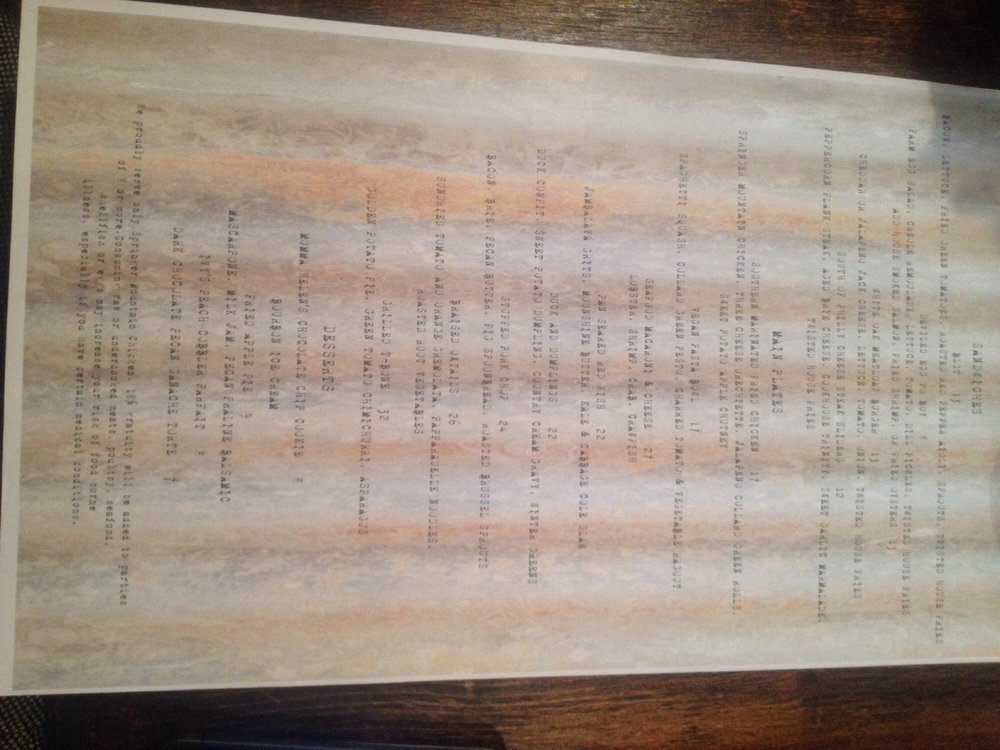 SANDWICHES
BLT 13
BACON, LETTUCE, FRIED GREEN TOMATOES, ROASTED RED PEPPER AIOLI, SPROUTS, TWISTED HOUSE FRIES
DEVILED EGG PO BOY
FARM EGG SALAD, CREOLE REMOULADE, LETTUCE, TOMATO, DILL PICKLES, TWISTED HOUSE FRIES
ADD HOUSE SMOKED SALMON, FRIED SHRIMP, OR FRIED OYSTERS 13
WHITE OAK BURGER 13
CHEDDAR OR JALAPENO JACK CHEESE, LETTUCE, TOMATO, ONION, TWISTED HOUSE FRIES
SOUTH OF PHILLY CHEESE STEAK SLIDERS 12
PEPPERCORN FLANK STEAK, CHEESE, TRINITY, SWEET GARLIC MARMALADE,
TWISTED HOUSE FRIES
MAIN PLATES
SOUTHERN MARINATED FRIED CHICKEN 17
SPRINGER MOUNTAIN CHICKEN, THREE CHEESE ORECHIETE, JALAPENO COLLARD GREEN ROLLS,
SWEET POTATO APPLE CHUTNEY
VEGAN PASTA BOWL 17
SPAGHETTI SQUASH, COLLARD GREEN PESTO, CHARRED TOMATO & VEGETABLE RAGOUT
SEAFOOD MACARONI & CHEESE 27
LOBSTER, SHRIMP, CRAB, CRAWFISH
PAN SEARED RED FISH 22
JAMBALAYA GRITS, MOONSHINE BUTTER, KALE & CABBAGE COLE SLAW
DUCK AND DUMPLINGS 22
DUCK CONFIT, SWEET POTATO DUMPLING, COUNTRY CREAM GRAVY, WINTER GREENS
STUFFED PORK CHOP 24
BACON, BRIE, PECAN BUTTER, FIG SPOONBREAD, ROASTED BRUSSEL SPROUTS
BRAISED OXTAILS 26
SUNDRIED TOMATO AND ORANGE GREMOLATA, PAPPARADELLE NOODLES,
ROASTED ROOT VEGETABLES
GRILLED T-BONE 32
GOLDEN POTATO PIE, GREEN TOMATO CHIMICHURRI, ASPARAGUS
DESSERTS
MOMMA HEDEN'S CHOCOLATE CHIP COOKIE 8
BOURBON ICE CREAM
FRIED APPLE PIE 9
MASCARPONE, MILK JAM, PECAN PRALINE BALSAMIC
IVY'S PEACH COBBLER PARFAIT 8
DARK CHOCOLATE PECAN GANACHE TORTE 7
We proudly serve only Springer Mountain Chickens. 18% gratuity will be added to parties
of 5 or more. Consuming raw or undercooked meats, poultry, seafood,
shellfish or eggs may increase your risk of food borne
illness, especially if you have certain medical conditions.